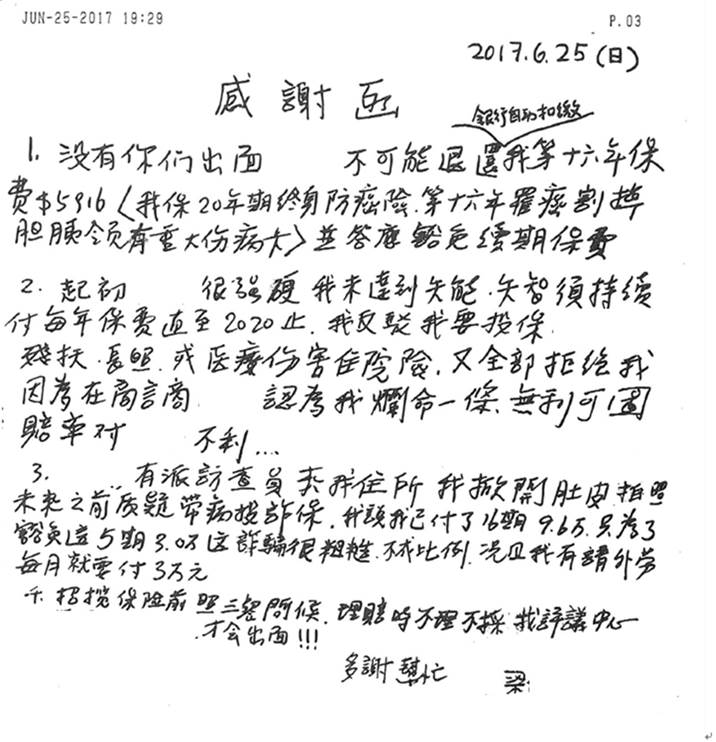 JUN-25-2017 19:29 P.03
2017.6.25(日)
感謝函
銀行自動扣繳
1. 没有你们出面 不可能退還我等十六年保
費$5916〈我保20年期終身防癌險.第十六年罹癌割掉
胆胰领有重大伤病卡〉並答應豁免續期保費
2. 起初 很强硬 我未達到失能.失智須持續
付每年保費直至2020止.我反駁我要投保
殘扶.長照.或医療伤害住院險.又全部拒绝我
因為在商言商 認為我爛命一條.無利可圖
賠率对 不利...
3. ..有派訪查員来我住所 我掀開肚皮拍照
未来之前质疑帶病投詐保.我説我已付了16期9.6万.只為了
豁免這5期3.0万这詐騙很粗糙.不成比例.況且我有請外劳
每月就要付3万元
4. 招攬保險前照三餐問候.理賠時不理不採 找評議中心
才会出面!!!
多謝幫忙 梁